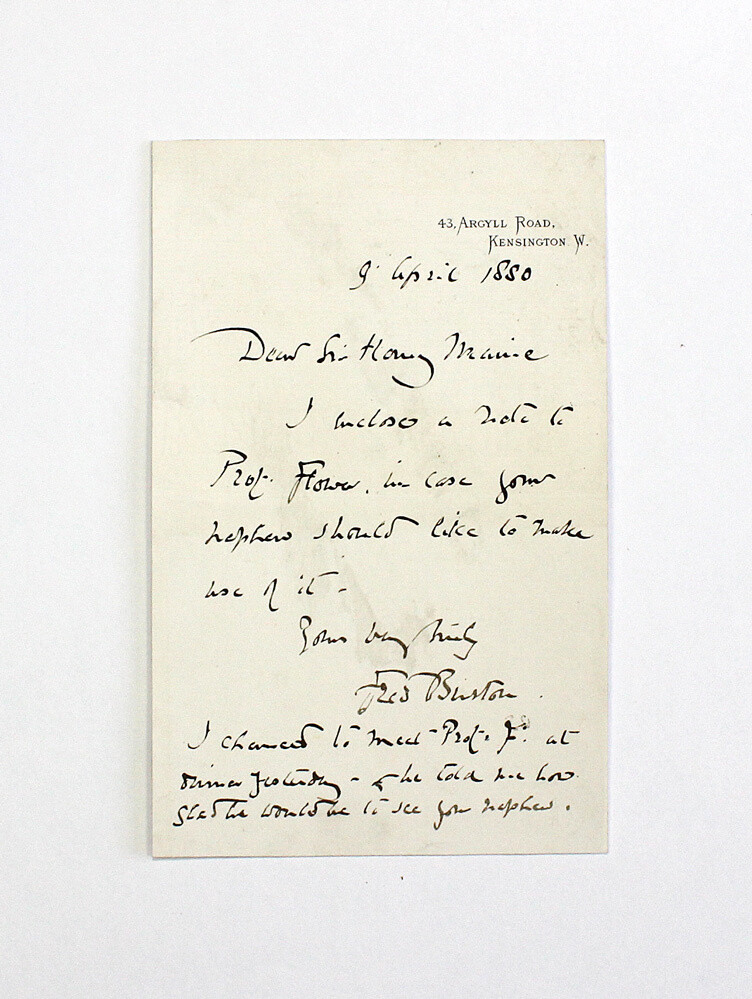 43, ARGYLL ROAD,
KENSINGTON W.
9 April 1880
Dear Sir Henry Maine
I enclose a note to
Prof. Flower, in case your
nephew should like to make
use of it -
Yours very truly
Fred Burton.
I chanced to meet Prof. F. at
dinner yesterday - & he told me how
glad he would be to see your nephew.